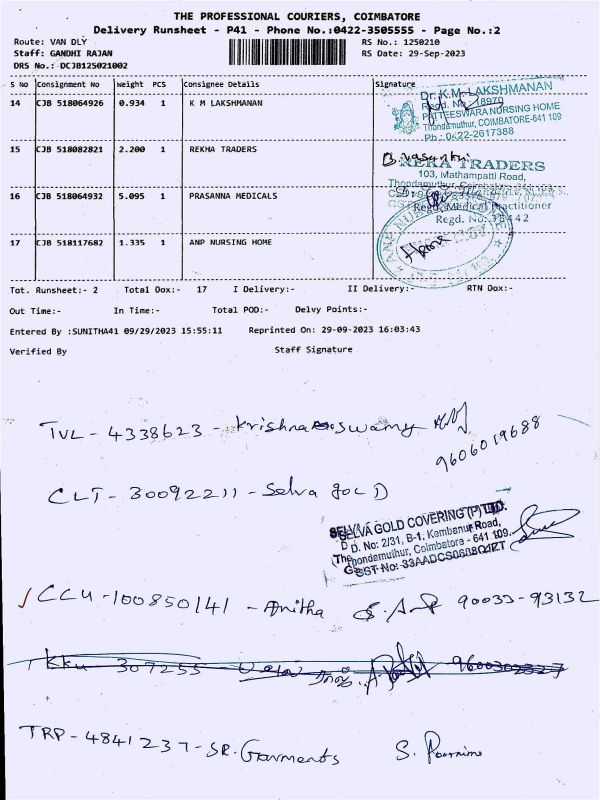 THE PROFESSIONAL COURIERS, COIMBATORE
Delivery Runsheet - P41 - Phone No.:0422-3505555 - Page No.:2
Route: VAN DLY
RS No.: 1250210
Staff: GANDHI RAJAN
RS Date: 29-Sep-2023
DRS No.: DCJB125021002
S No Consignment No Weight PCS Consignee Details Signature
14 CJB 518064926 0.934 1 K M LAKSHMANAN
Dr. K.M. LAKSHMANAN
Regd. No. 18970
PATTEESWARA NURSING HOME
Thondamuthur, COIMBATORE-641 109
Ph: 0422-2617388
15 CJB 518082821 2.200 1 REKHA TRADERS
B. Vasanthi
TRADERS
103, Mathampatti Road,
16 CJB 518064932 5.095 1 PRASANNA MEDICALS
Regd. Medical Practitioner
Regd. No:
17 CJB 518117682 1.335 1 ANP NURSING HOME
Tot. Runsheet:- 2 Total Dox:- 17 I Delivery:- II Delivery:- RTN Dox:-
Out Time:- In Time:- Total POD:- Delvy Points:-
Entered By :SUNITHA41 09/29/2023 15:55:11 Reprinted On: 29-09-2023 16:03:43
Verified By Staff Signature
TVL - 4338623 - Krishna swamy
9606019688
CLT - 30092211 - Selva goLD
SELVA GOLD COVERING (P) LTD.
D. No: 2/31, B-1, Kembanur Road,
Thondamuthur, Coimbatore - 641 109.
GST No:
CCU - 100850141 - Anitha 90033-93132
KKU 307255
TRP - 4841237 - SR. Garments S. Poornima